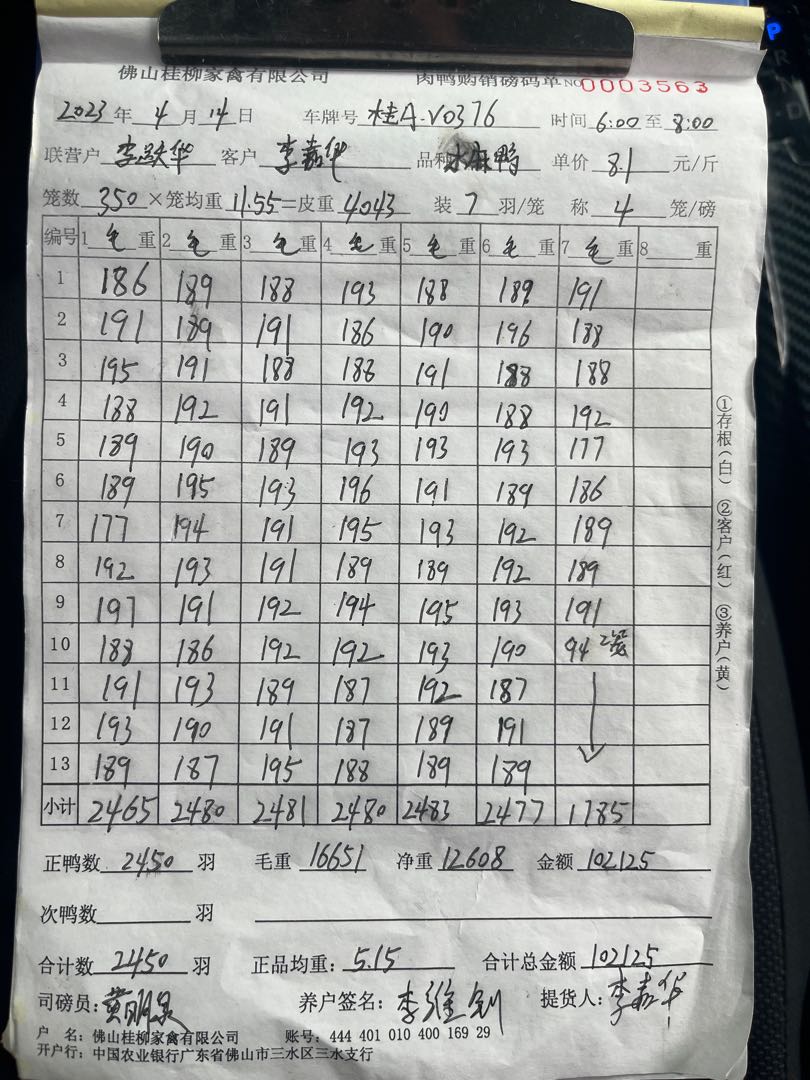 佛山桂柳家禽有限公司 肉鸭购销磅码单 No 0003563
2023 年 4 月 14 日 车牌号 桂A·V0376 时间 6:00 至 8:00
联营户 李跃华 客户 李嘉华 品种 水麻鸭 单价 8.1 元/斤
笼数 350 × 笼均重 11.55 = 皮重 4043 装 7 羽/笼 称 4 笼/磅
编号 1 毛 重 2 毛 重 3 毛 重 4 毛 重 5 毛 重 6 毛 重 7 毛 重 8 重
1 186 189 188 193 188 189 191
2 191 189 191 186 190 196 188
3 195 191 188 188 191 188 188
4 188 192 191 192 190 188 192
5 189 190 189 193 193 193 177
6 189 195 193 196 191 189 186
7 177 194 191 195 193 192 189
8 192 193 191 189 189 192 189
9 197 191 192 194 195 193 191
10 188 186 192 192 193 190 94 2笼
11 191 193 189 187 192 187
12 193 190 191 187 189 191
13 189 187 195 188 189 189
小计 2465 2480 2481 2480 2483 2477 1785
正鸭数 2450 羽 毛重 16651 净重 12608 金额 102125
次鸭数 羽
合计数 2450 羽 正品均重: 5.15 合计总金额 102125
司磅员: 黄明泉 养户签名: 李维钊 提货人: 李嘉华
户 名: 佛山桂柳家禽有限公司 账号: 444 401 010 400 169 29
开户行: 中国农业银行广东省佛山市三水区三水支行
①存根(白) ②客户(红) ③养户(黄)